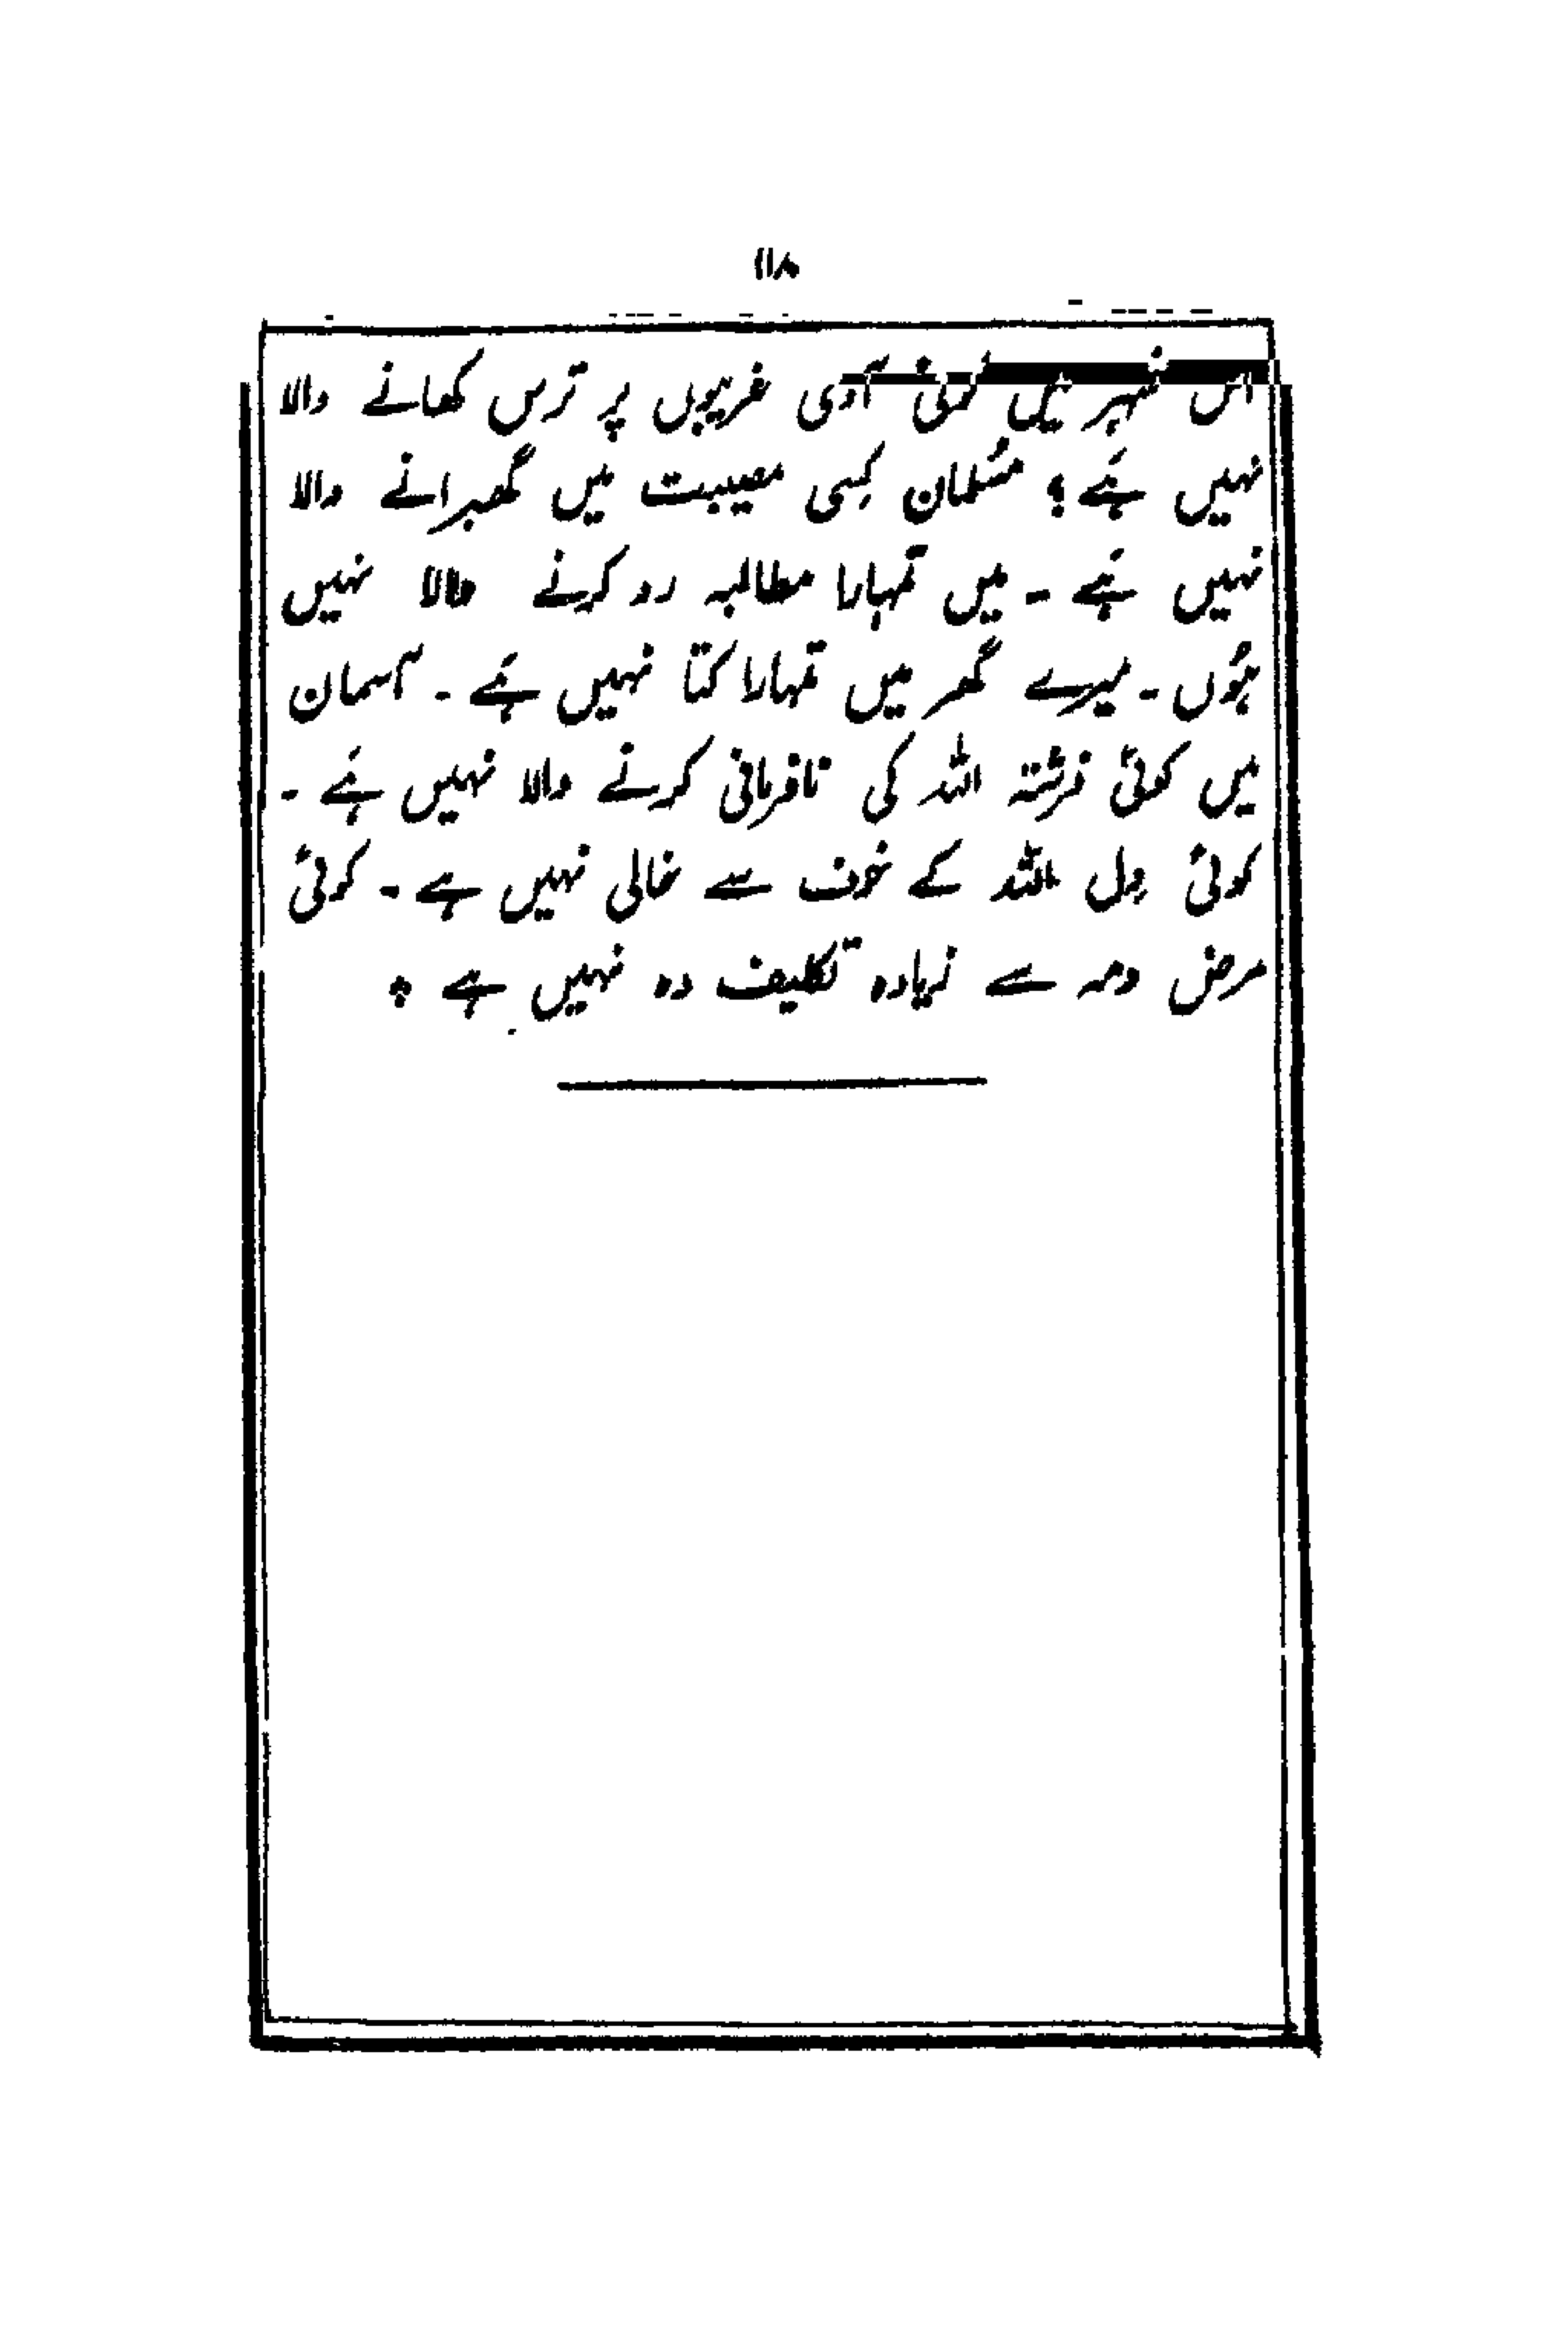 ۱۱۸
اس شہر میں کوئی آدمی غریبوں پر ترس کھانے والا
نہیں ہَے ؟ مُسلمان کِسی مصیبت میں گھبرانے والا
نہیں ہَے ۔ میں تمہارا مطالبہ رد کرنے والا نہیں
ہُوں ۔ میرے گھر میں تمہارا کتا نہیں ہَے ۔ آسمان
میں کوئی فرشتہ اللہ کی نافرمانی کرنے والا نہیں ہَے ۔
کوئی دِل اللہ کے خوف سے خالی نہیں ہے ۔ کوئی
مرض دمہ سے زیادہ تکلیف دہ نہیں ہے ؞